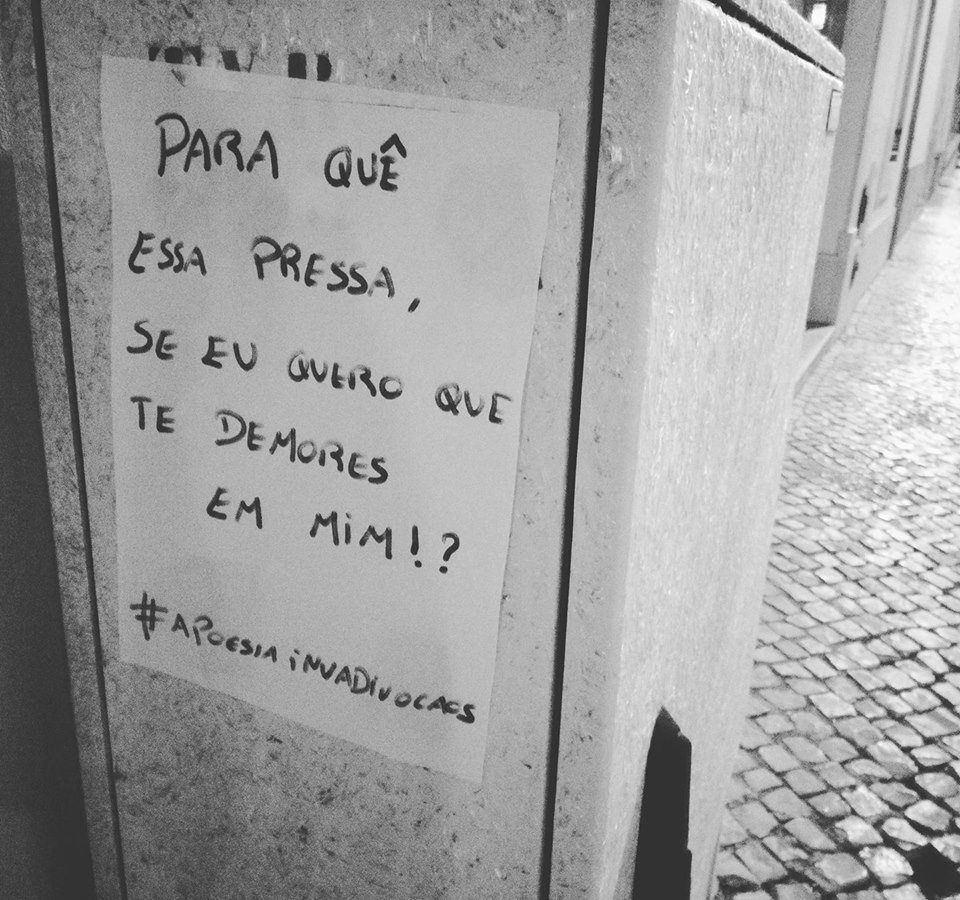 PARA QUÊ
ESSA PRESSA,
SE EU QUERO QUE
TE DEMORES
EM MIM!?
#APOESIAINVADIVOCAOS